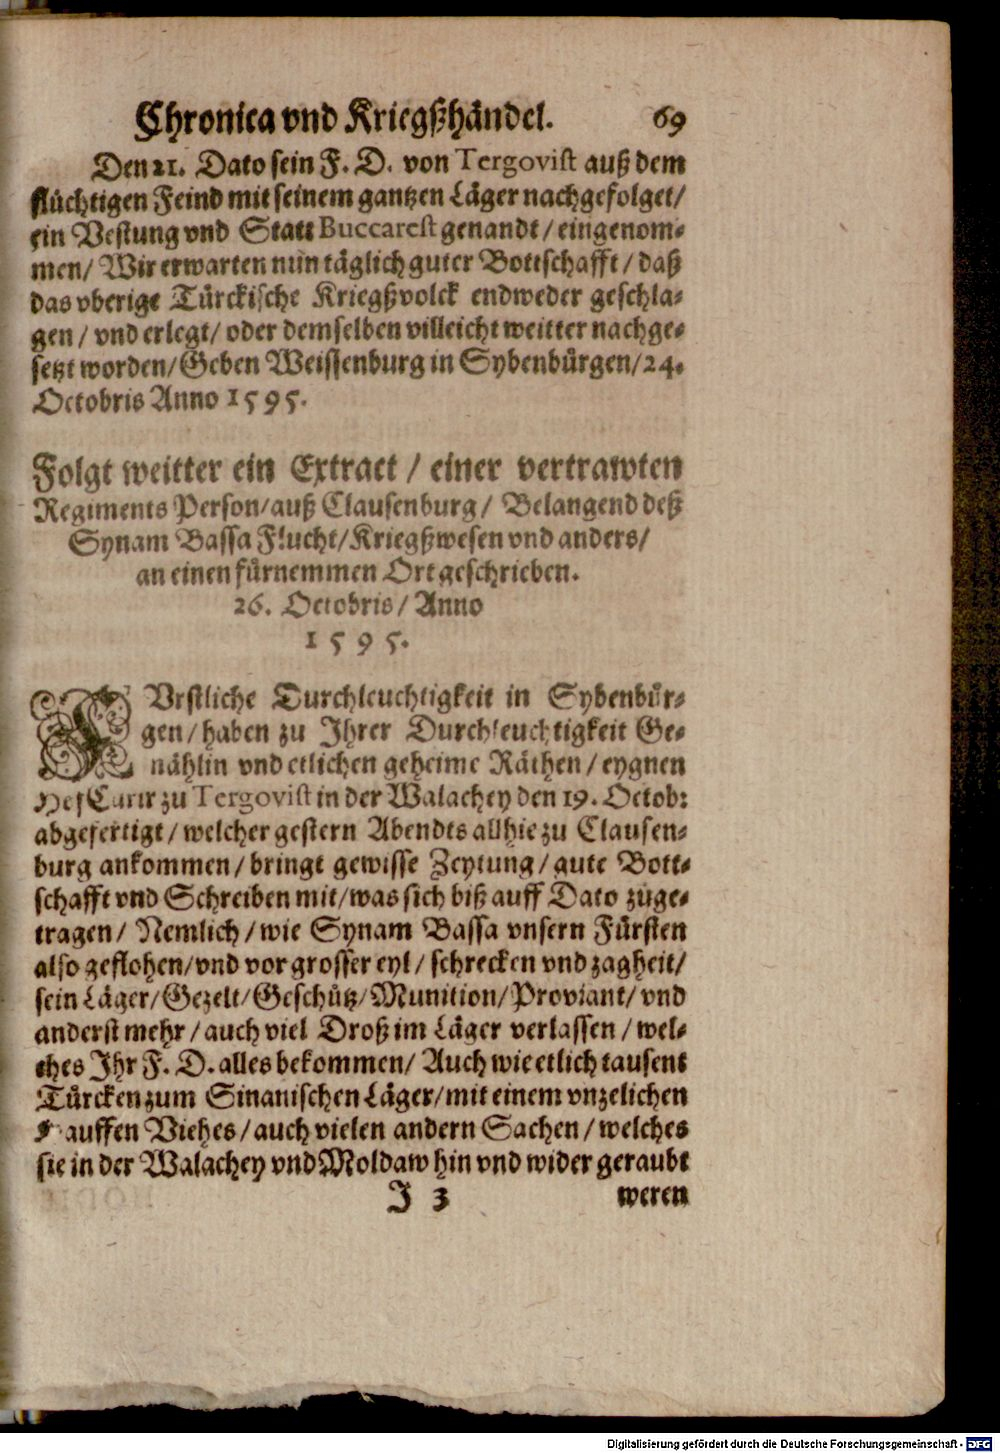 Chronica vnd Kriegßhändel. 69
Den 21. Dato sein F. D. von Tergovist auß dem
flüchtigen Feind mit seinem gantzen Läger nachgefolget/
ein Vestung vnd Statt Buccarest genandt/ eingenom-
men/ Wir erwarten nun täglich guter Bottschafft/ daß
das vberige Türckische Kriegßvolck endweder geschla-
gen/ vnd erlegt/ oder demselben villeicht weitter nachge-
setzt worden/ Geben Weissenburg in Sybenbürgen/ 24.
Octobris Anno 1595.
Folgt weitter ein Extract/ einer vertrawten
Regiments Person/ auß Clausenburg/ Belangend deß
Synam Bassa Flucht/ Kriegßwesen vnd anders/
an einen fürnemmen Ort geschrieben.
26. Octobris/ Anno
1595.
FVrstliche Durchleuchtigkeit in Sybenbür-
gen/ haben zu Ihrer Durchleuchtigkeit Ge-
nählin vnd etlichen geheime Räthen/ eygnen
zu Tergovist in der Walachey den 19. Octob:
abgefertigt/ welcher gestern Abendts allhie zu Clausen-
burg ankommen/ bringt gewisse Zeytung/ gute Bott-
schafft vnd Schreiben mit/ was sich biß auff Dato zuge-
tragen/ Nemlich/ wie Synam Bassa vnsern Fürsten
also geflohen/ vnd vor grosser eyl/ schrecken vnd zagheit/
sein Läger/ Gezelt/ Geschütz/ Munition/ Proviant/ vnd
anderst mehr/ auch viel Droß im Läger verlassen/ wel-
ches Ihr F. D. alles bekommen/ Auch wie etlich tausent
Türcken zum Sinanischen Läger/ mit einem vnzelichen
Hauffen Viehes/ auch vielen andern Sachen/ welches
sie in der Walachey vnd Moldaw hin vnd wider geraubt
I 3 weren
Digitalisierung gefördert durch die Deutsche Forschungsgemeinschaft - DFG